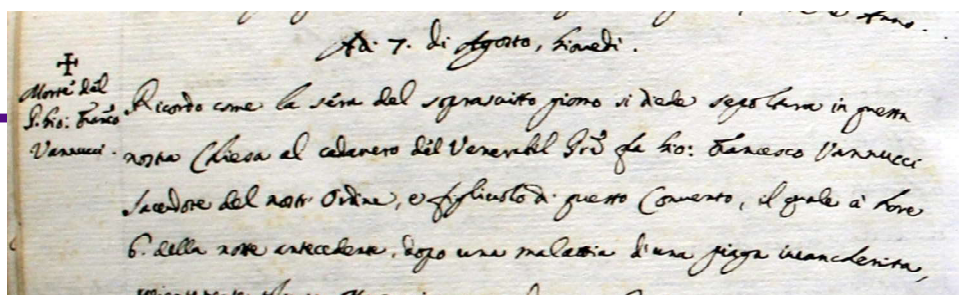 Anno.
Adi 7. di Agosto, Giovedi.
Morte del
P. Gio: Franco
Vannucci.
Ricordo come la sera del soprascritto giorno si diede sepoltura in questa
nostra Chiesa al cadavero del Venerabil Gio: Francesco Vannucci
Sacerdote del nostr Ordine, e figliuolo di questo Convento, il quale à hore
6. della notte antecedente, dopo una malattia d'una piaga incancherita,